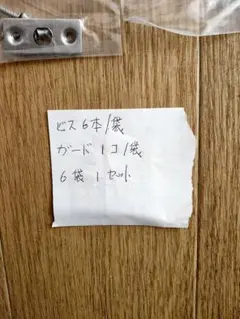 ビス6本/袋
ガード1コ/袋
6袋1セット